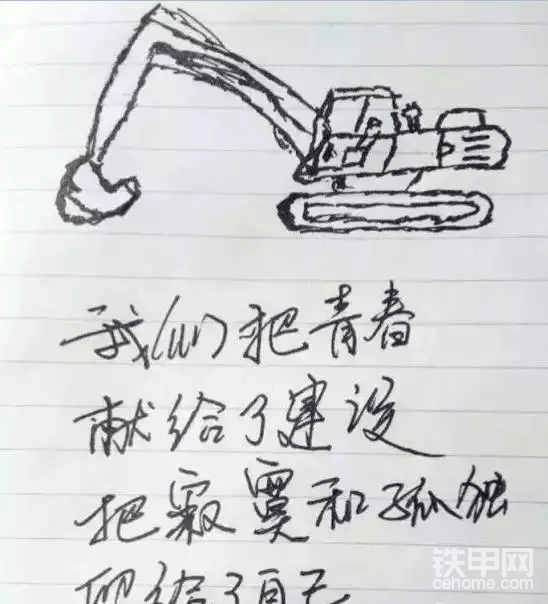 我们把青春
献给了建设
把寂寞和孤独
给了
铁甲网
cehome.com